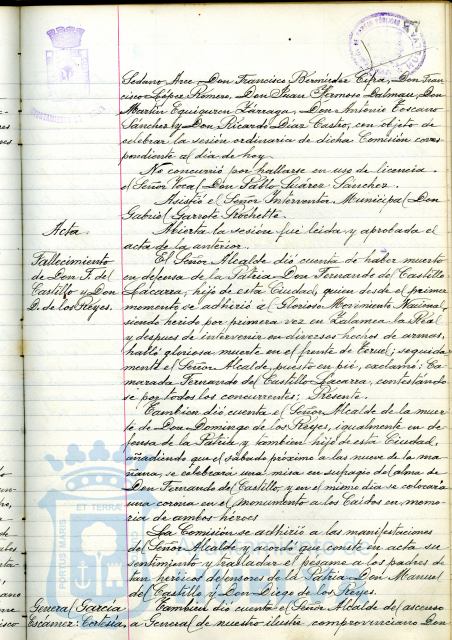 Sedano Arce, Don Francisco Bermúdez Cifra, Don Fran
cisco López Romero, Don Juan Hermoso Dalmau, Don
Martín Equiguren Zárraga, Don Antonio Toscano
Sánchez y Don Ricardo Díaz Castro, con objeto de
celebrar la sesión ordinaria de dicha Comisión corres
pondiente al día de hoy.
No concurrió por hallarse en uso de licencia
el Señor Vocal Don Pablo Suárez Sánchez.
Asistió el Señor Interventor Municipal Don
Gabriel Garrote
Acta.
Abierta la sesión fué leida y aprobada el
acta de la anterior.
Fallecimiento
de Don F. del
Castillo y Don
D. de los Reyes.
El Señor Alcalde dió cuenta de haber muerto
en defensa de la Patria Don Fernando del Castillo
Lacarra, hijo de esta Ciudad, quien desde el primer
momento se adhirió al Glorioso Movimiento Nacional,
siendo herido por primera vez en Zalamea la Real
y despues de intervenir en diversos hechos de armas,
halló gloriosa muerte en el frente de Teruel; seguida
mente el Señor Alcalde, puesto en pié, exclamó: Ca
marada Fernando del Castillo Lacarra, contestándo
se por todos los concurrentes: Presente.
Tambien dió cuenta el Señor Alcalde de la muer
te de Don Domingo de los Reyes, igualmente en de
fensa de la Patria y tambien hijo de esta Ciudad,
añadiendo que el sábado próximo a las nueve de la ma
ñana, se celebrará una misa en sufragio del alma de
Don Fernando del Castillo, y en el mismo dia se colocará
una corona en el monumento a los Caídos en memo
ria de ambos héroes
La Comisión se adhirió a las manifestaciones
del Señor Alcalde y acordó que conste en acta su
sentimiento y trasladar el pésame a los padres de
tan heróicos defensores de la Patria Don Manuel
del Castillo y Don Diego de los Reyes.
General García
Escámez: Cortesía.
Tambien dió cuenta el Señor Alcalde del ascenso
a General de nuestro ilustre comprovinciano Don
PORTUS MARIS
ET TERRAE